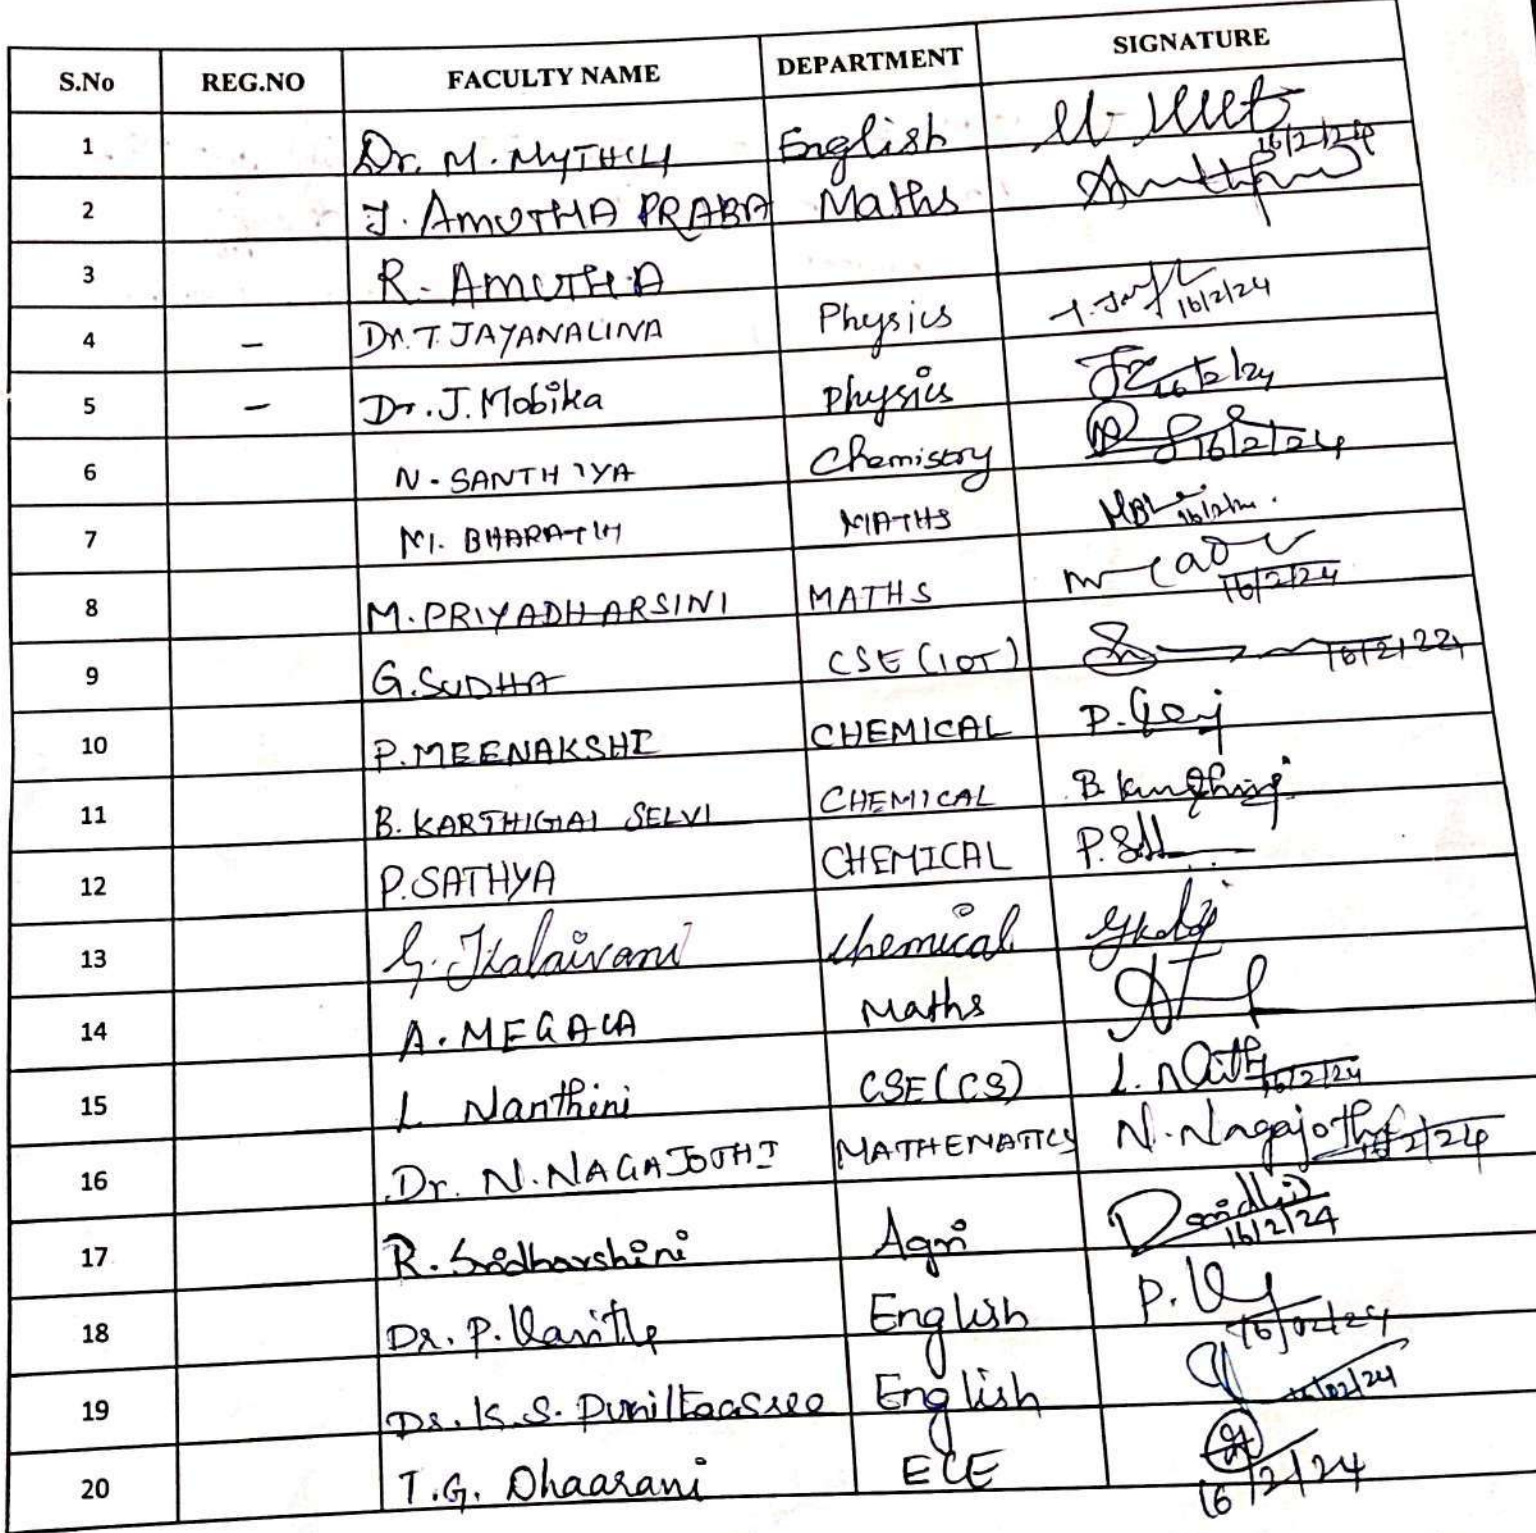 S.No REG.NO FACULTY NAME DEPARTMENT SIGNATURE
1 Dr. M. MYTHILI English 16/2/24
2 J. AMUTHA PRABA Maths
3 R. AMUTHA
4 - Dr. T. JAYANALINA Physics 16/2/24
5 - Dr. J. Mobika Physics 16/2/24
6 N. SANTHIYA Chemistry 16/2/24
7 M. BHARATHI MATHS
8 M. PRIYADHARSINI MATHS 16/2/24
9 G. SUDHA CSE (IOT) 16/2/22
10 P. MEENAKSHI CHEMICAL
11 B. KARTHIGAI SELVI CHEMICAL
12 P. SATHYA CHEMICAL
13 G. Kalaivani Chemical
14 A. MEGALA Maths
15 L Nanthini CSE (CS) 16/2/24
16 Dr. N. NAGAJOTHI MATHEMATICS N. Nagajothi 16/2/24
17 R. Sridharshini Agri 16/2/24
18 Dr. P. Vanitha English 16/02/24
19 Dr. K. S. English 16/02/24
20 T.G. Dhaarani ECE 16/2/24